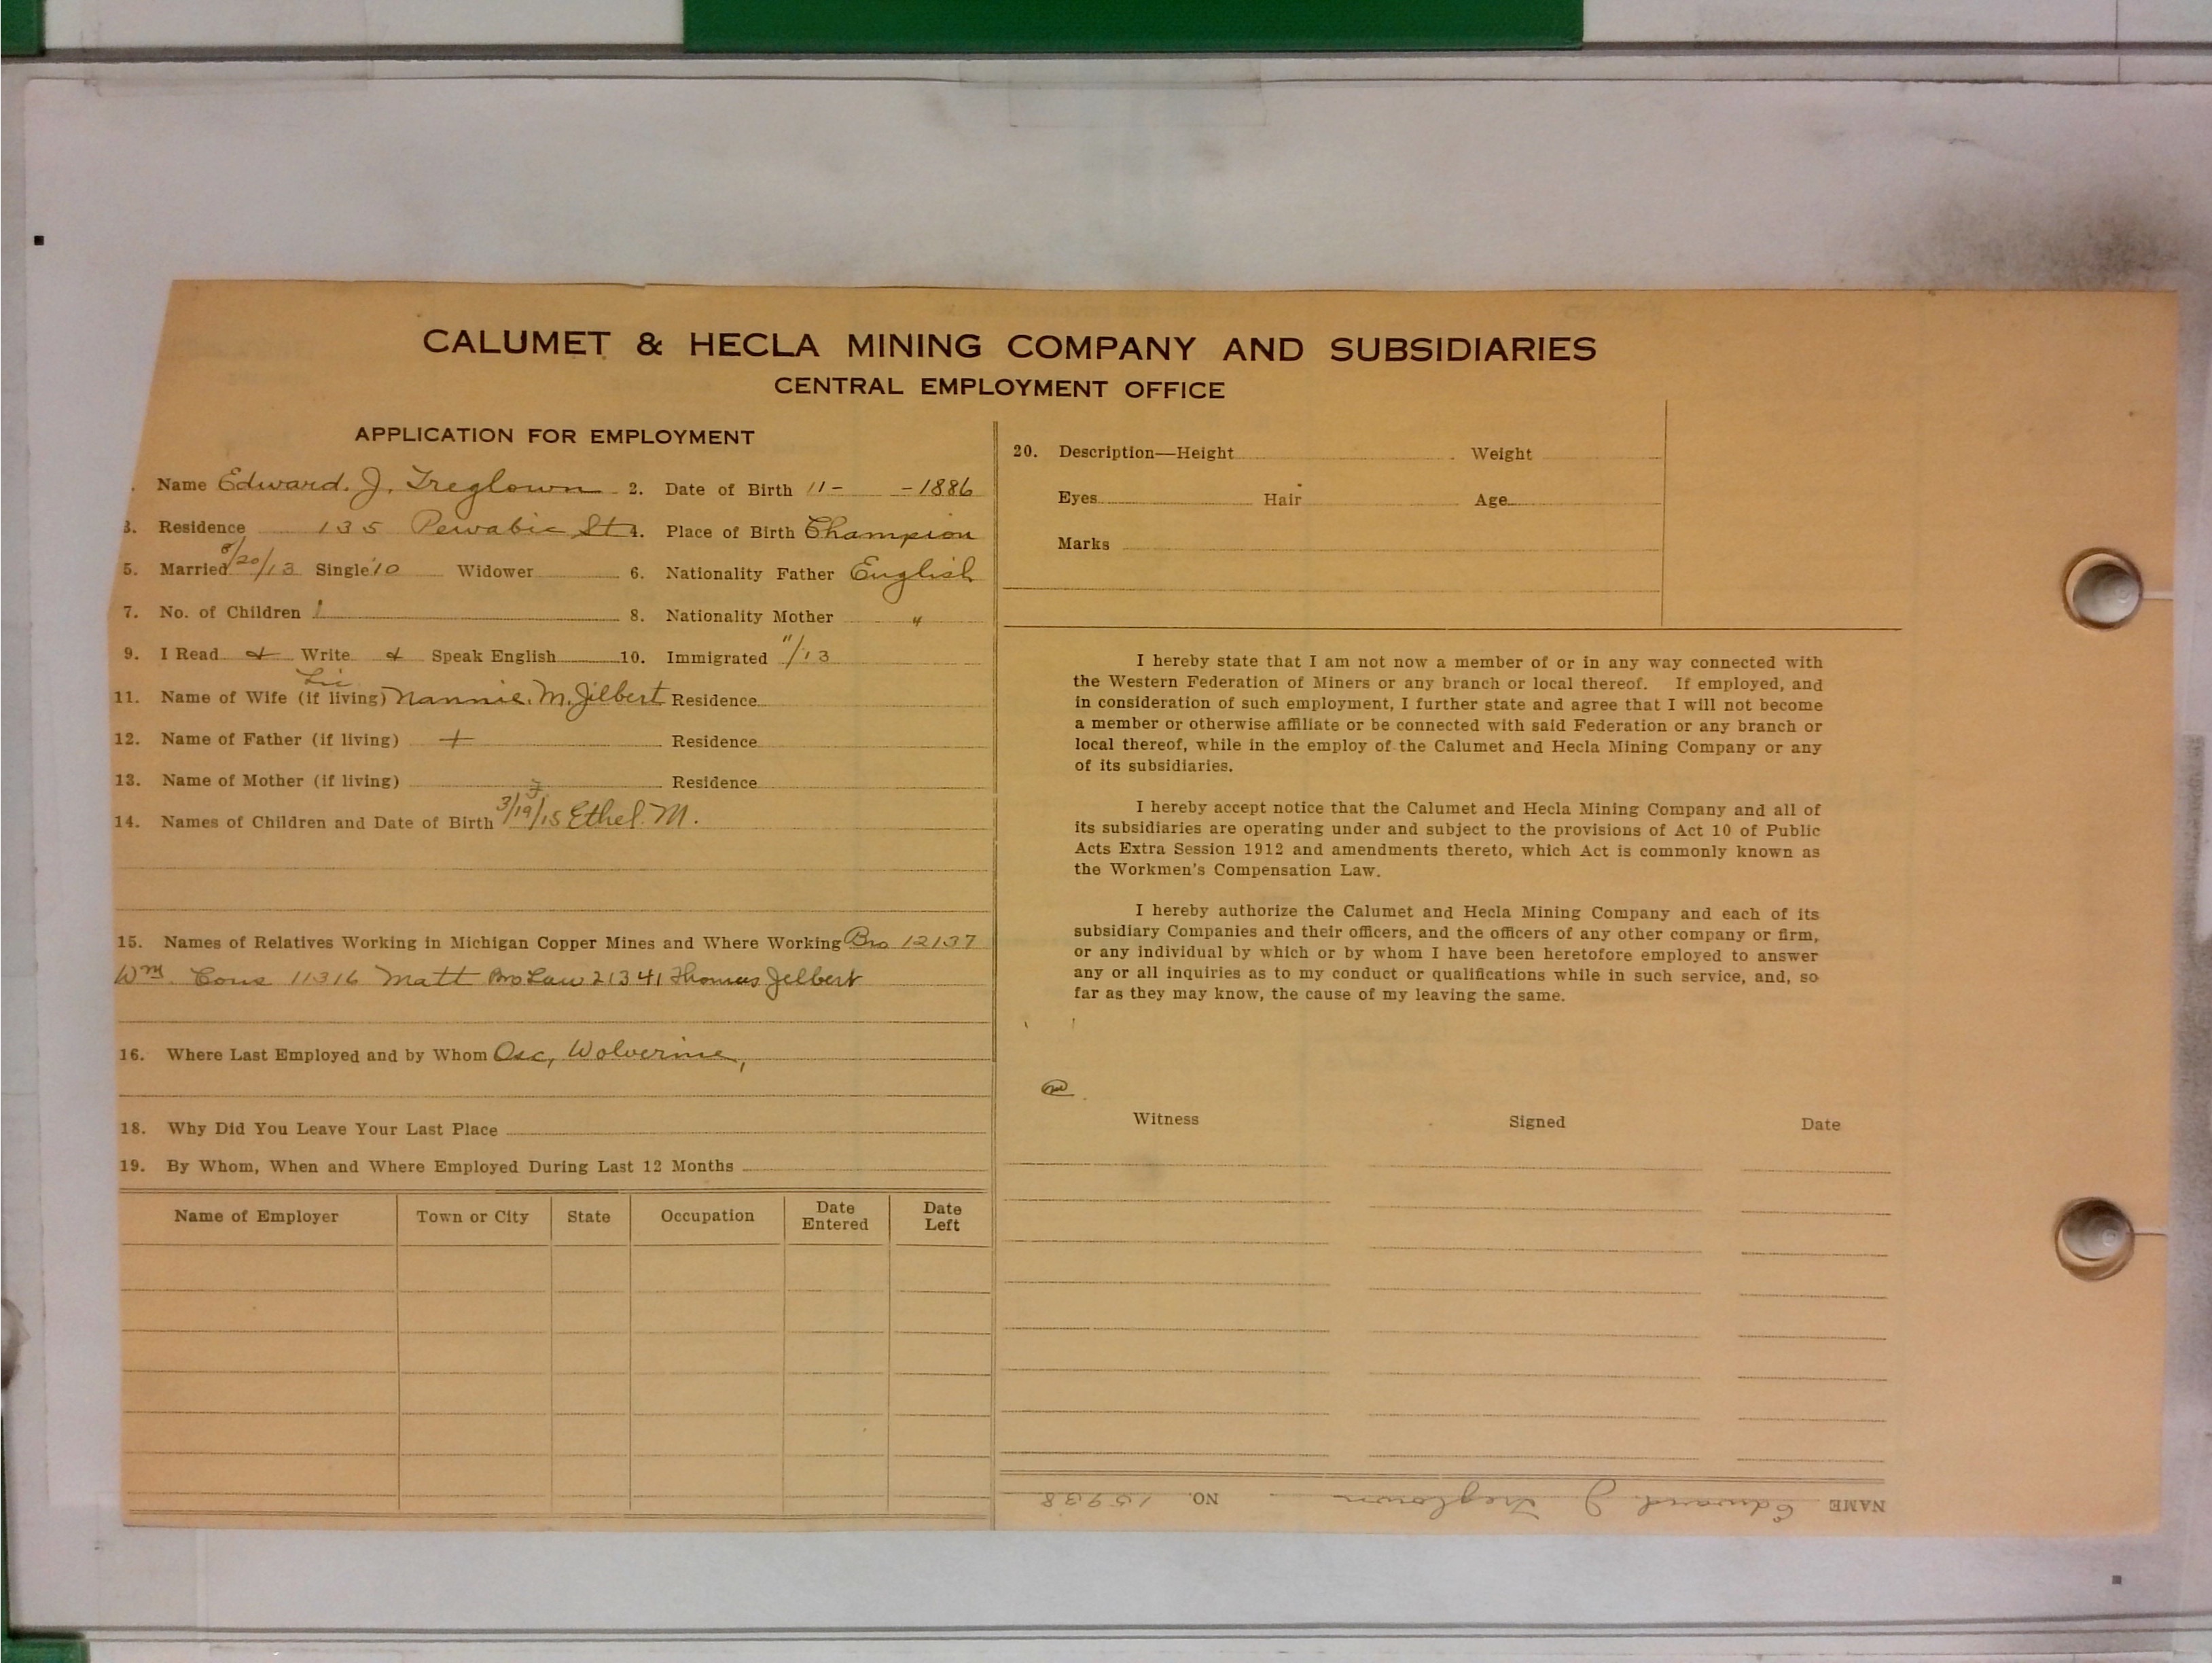 CALUMET & HECLA MINING COMPANY AND SUBSIDIARIES
CENTRAL EMPLOYMENT OFFICE
APPLICATION FOR EMPLOYMENT
. Name Edward. J. Treglown 2. Date of Birth 11- -1886
3. Residence 135 Pewabic St 4. Place of Birth Champion
5. Married 8/20/13 Single 10 Widower 6. Nationality Father English
7. No. of Children 1 8. Nationality Mother "
9. I Read & Write & Speak English 10. Immigrated "/13
11. Name of Wife (if living) Nannie. M. Jilbert Residence
12. Name of Father (if living) + Residence
13. Name of Mother (if living) Residence
14. Names of Children and Date of Birth 3/19/15 Ethel M.
15. Names of Relatives Working in Michigan Copper Mines and Where Working Bro 12137
Wm. Cous 11316 Matt Bro Law 21341 Thomas Jelbert
16. Where Last Employed and by Whom Osc, Wolverine,
18. Why Did You Leave Your Last Place
19. By Whom, When and Where Employed During Last 12 Months
Name of Employer Town or City State Occupation Date Entered Date Left
20. Description—Height Weight
Eyes Hair Age
Marks
I hereby state that I am not now a member of or in any way connected with
the Western Federation of Miners or any branch or local thereof. If employed, and
in consideration of such employment, I further state and agree that I will not become
a member or otherwise affiliate or be connected with said Federation or any branch or
local thereof, while in the employ of the Calumet and Hecla Mining Company or any
of its subsidiaries.
I hereby accept notice that the Calumet and Hecla Mining Company and all of
its subsidiaries are operating under and subject to the provisions of Act 10 of Public
Acts Extra Session 1912 and amendments thereto, which Act is commonly known as
the Workmen's Compensation Law.
I hereby authorize the Calumet and Hecla Mining Company and each of its
subsidiary Companies and their officers, and the officers of any other company or firm,
or any individual by which or by whom I have been heretofore employed to answer
any or all inquiries as to my conduct or qualifications while in such service, and, so
far as they may know, the cause of my leaving the same.
Witness Signed Date
NAME Edward J Treglown NO. 15938